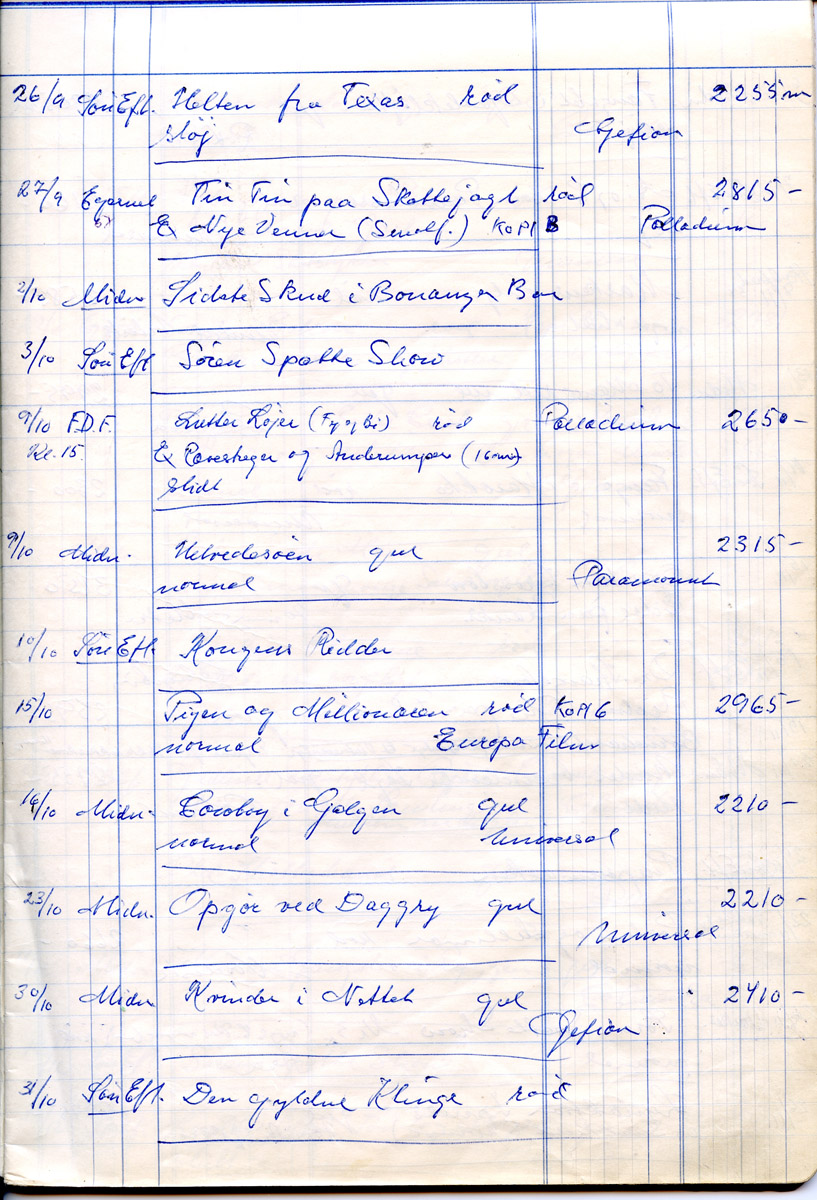 26/9 SönEft. Helten fra Texas röd 2255 m
støj Gefion
27/9 Egernel Tin Tin paa Skattejagt röd 2815-
Ex Nye Venner (Senolf.) KOPI B Palladium
2/10 Midn Sidste Skud i Bonanza Bar
3/10 SönEft Sören Spætte Show
9/10 F.D.F. Lutter Løjer (Fy og Bi) röd Palladium 2650-
Kl. 15. Ex Ræverkager og Anderumper (16mm)
slidt
9/10 Midn. Helvedesöen gul 2315-
normal Paramount
10/10 SönEft. Kongens Ridder
15/10 Pigen og Millionæren röd KOPI 6 2965-
normal Europa Film
16/10 Midn. Cowboy i Galgen gul 2210-
normal Universal
23/10 Midn. Opgör ved Daggry gul 2210-
Universal
30/10 Midn Kvinder i Nettet gul 2410-
Gefion
31/10 SönEft. Den gyldne Klinge röd